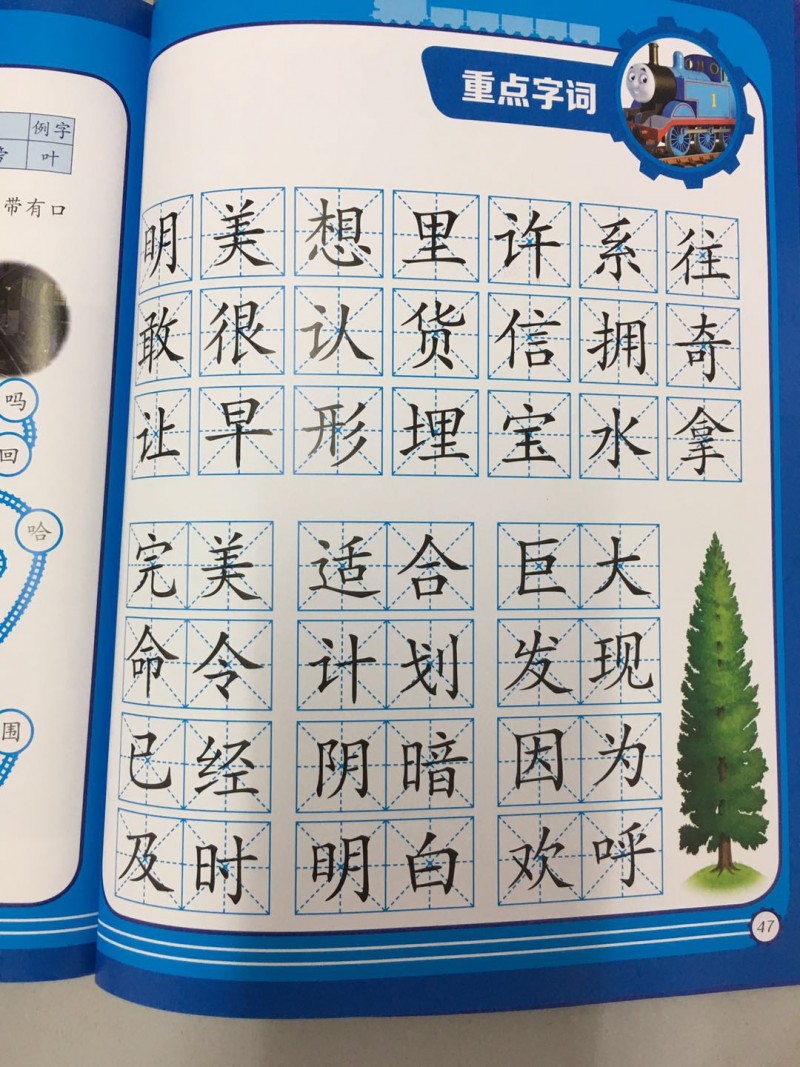 例字
叶
带有口
吗
回
哈
围
重点字词
1
明 美 想 里 许 系 往
敢 很 认 货 信 拥 奇
让 早 形 埋 宝 水 拿
完美 适合 巨大
命令 计划 发现
已经 阴暗 因为
及时 明白 欢呼
47